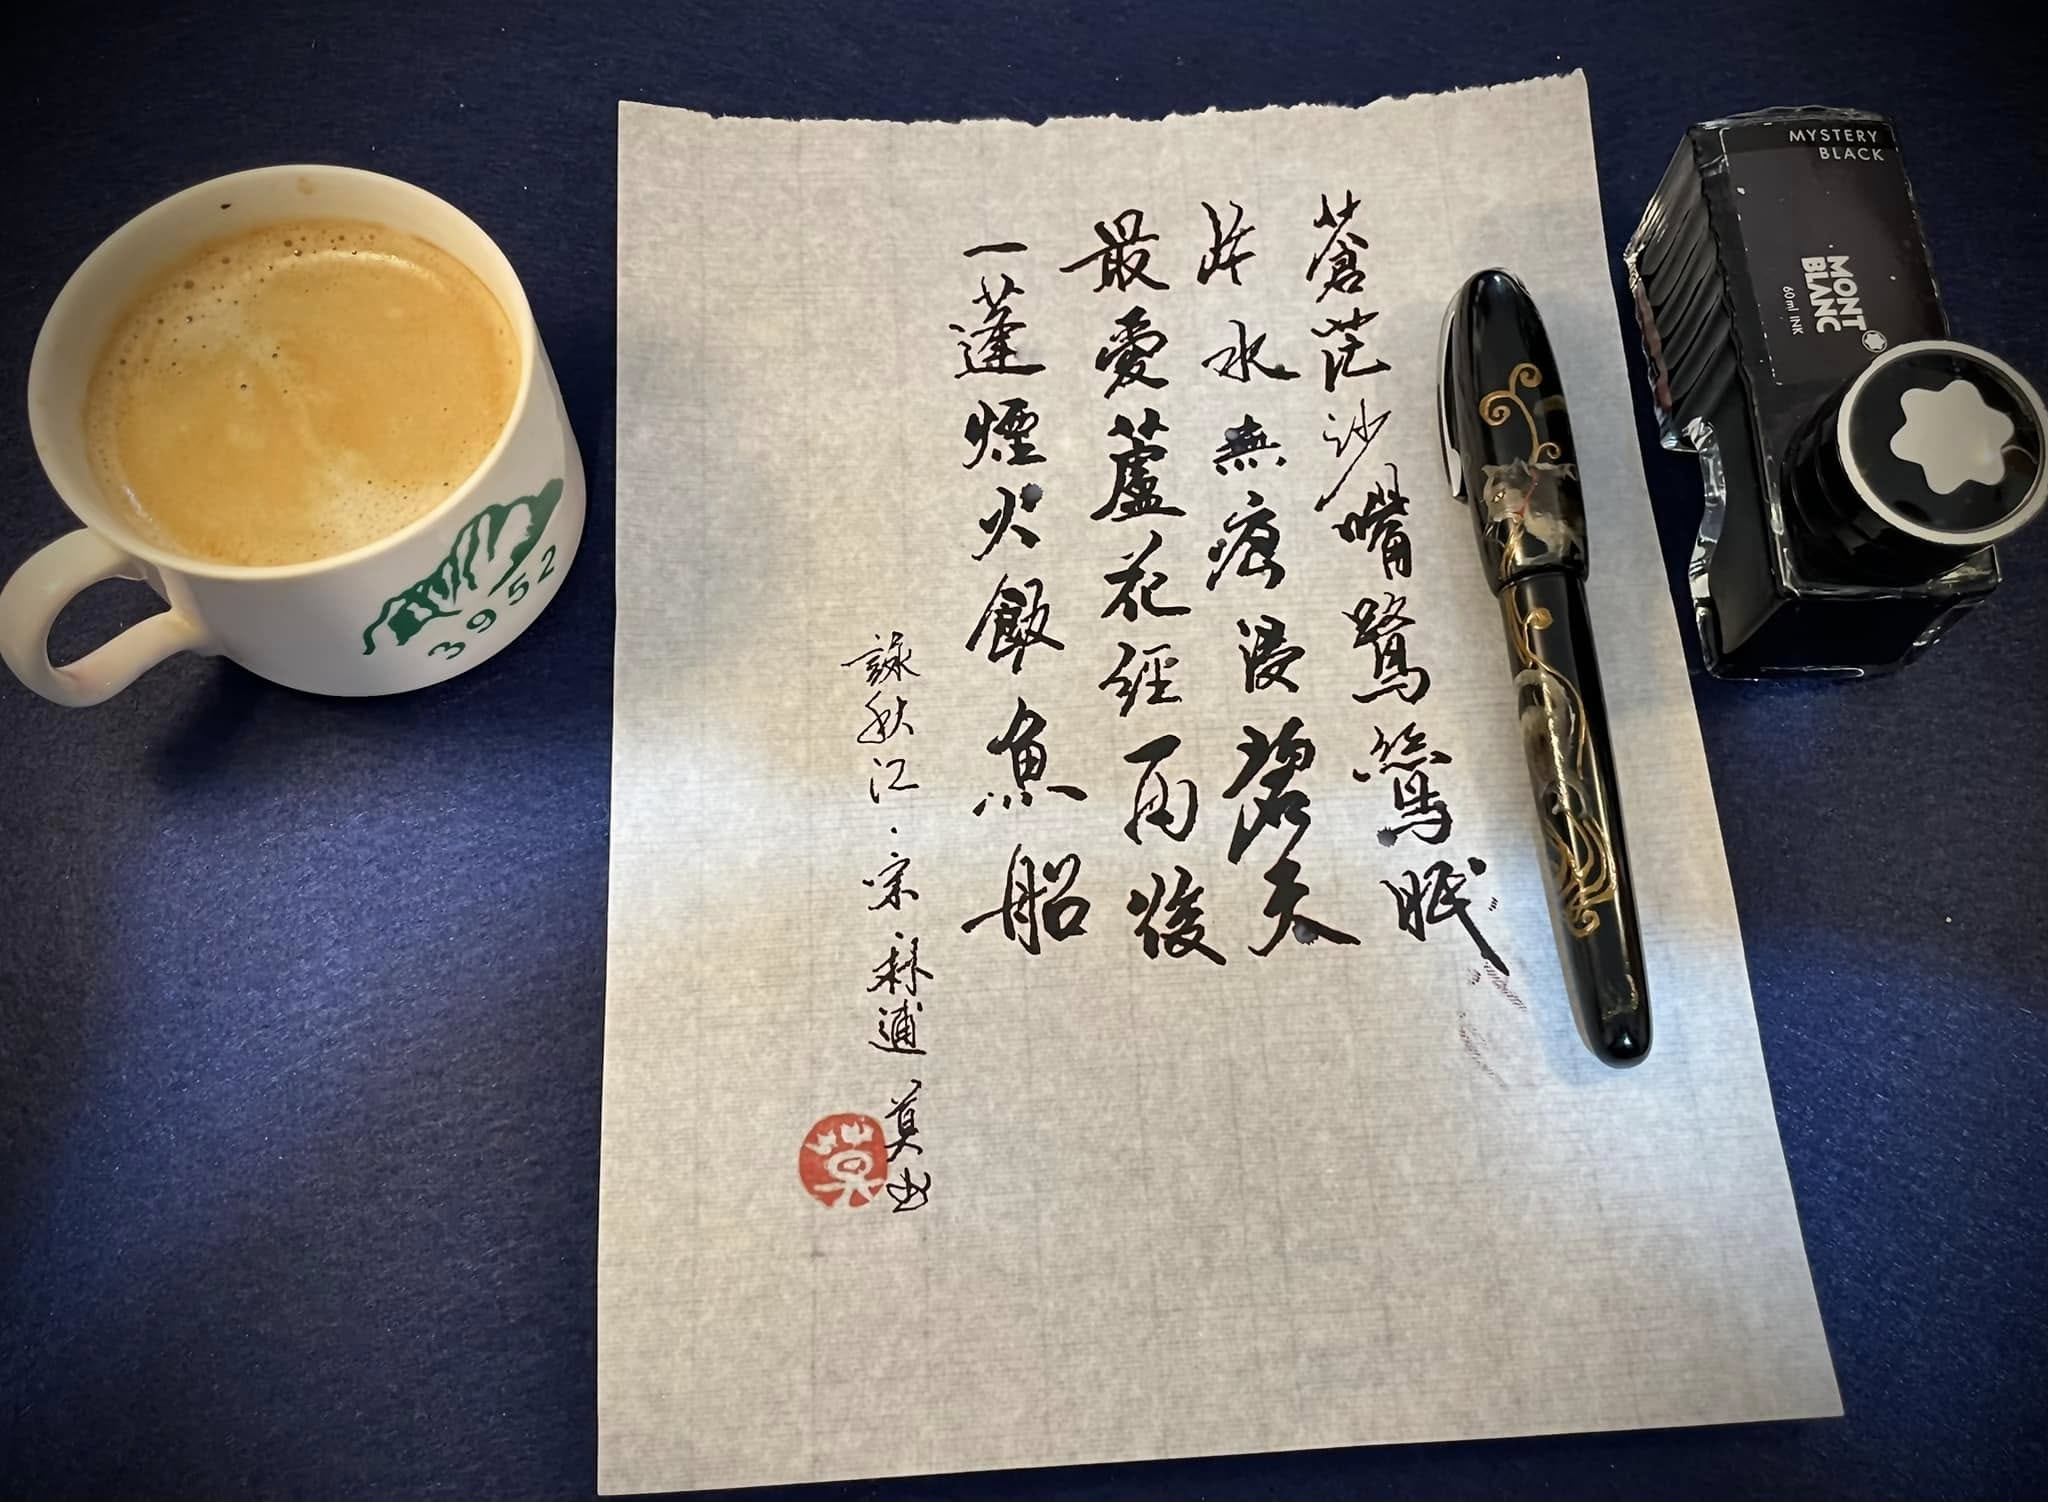 蒼茫沙嘴鷺鶿眠
片水無痕浸碧天
最愛蘆花經雨後
一蓬煙火飯魚船
詠秋江·宋·林逋 莫出
莫
3952
MYSTERY
BLACK
MONT
BLANC
60ml INK